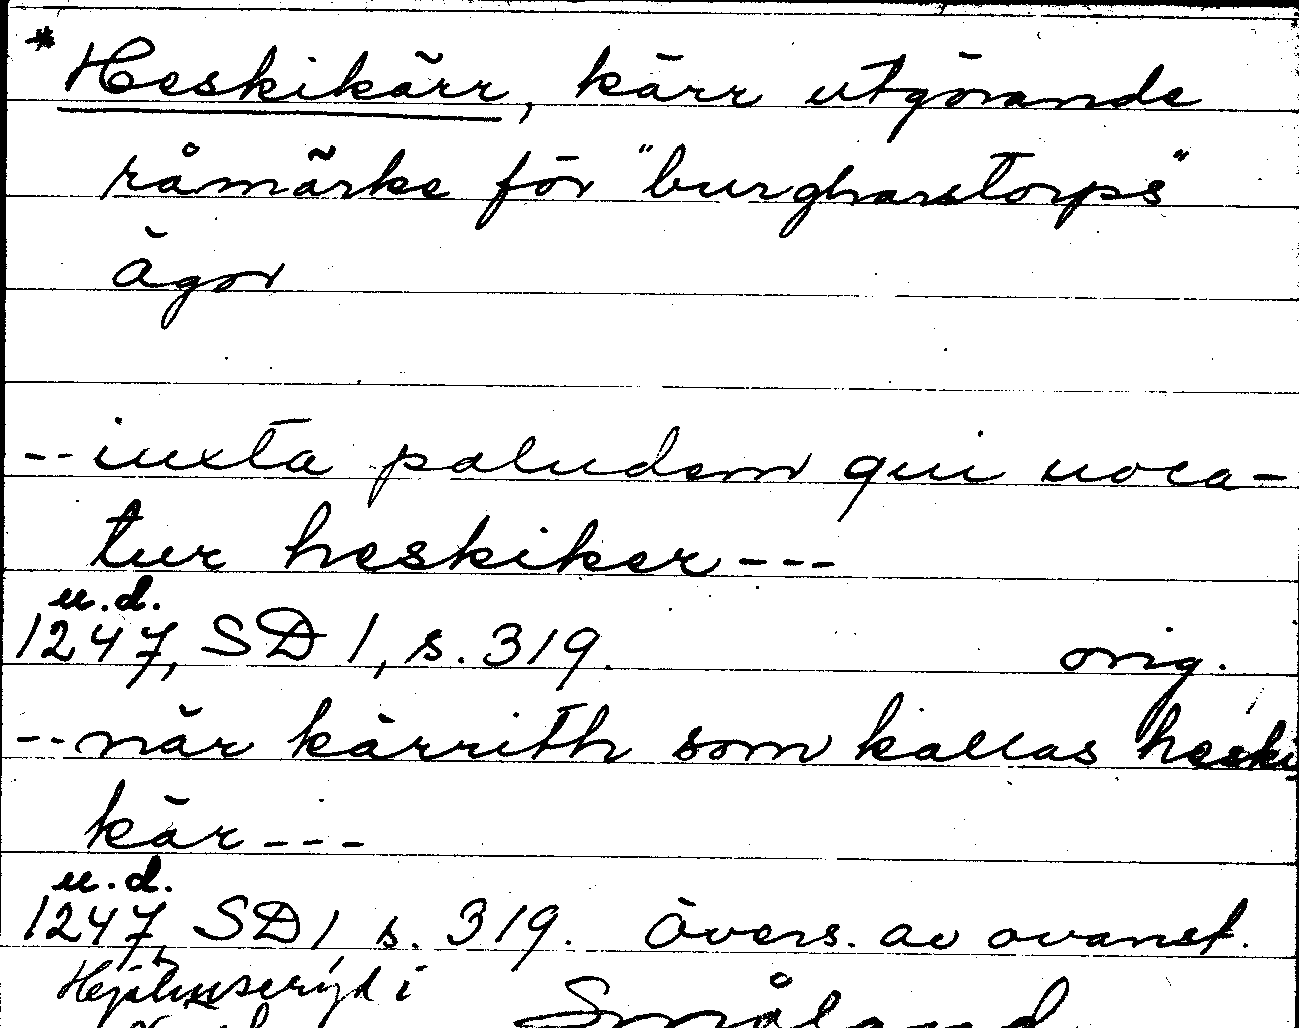 * Heskikärr, kärr utgörande
råmärke för "burgharstorps"
ägor
-- iuxta paludem qui uoca-
tur heskiker ---
u.d.
1247, SD 1, s. 319. orig.
-- när kärrith som kallas heski
kär ---
u.d.
1247, SD 1, s. 319. Övers. av ovanst.
i
Småland